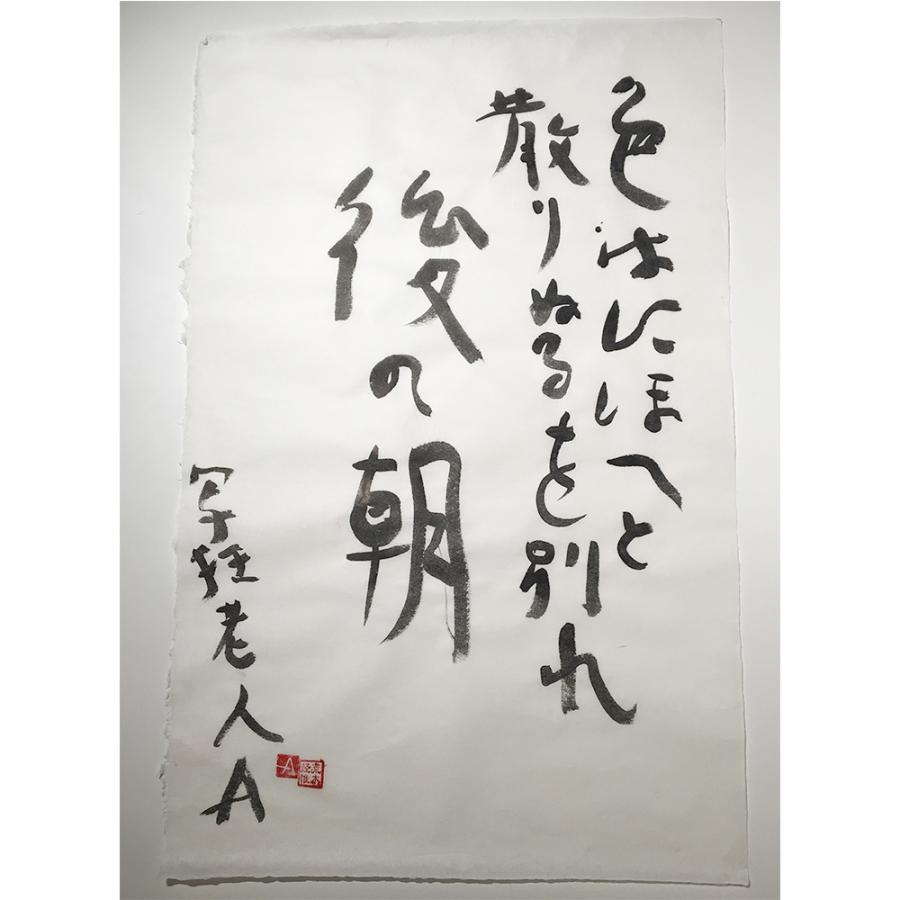 色はにほへと
散りぬるを別れ
後の朝
写狂老人A
A